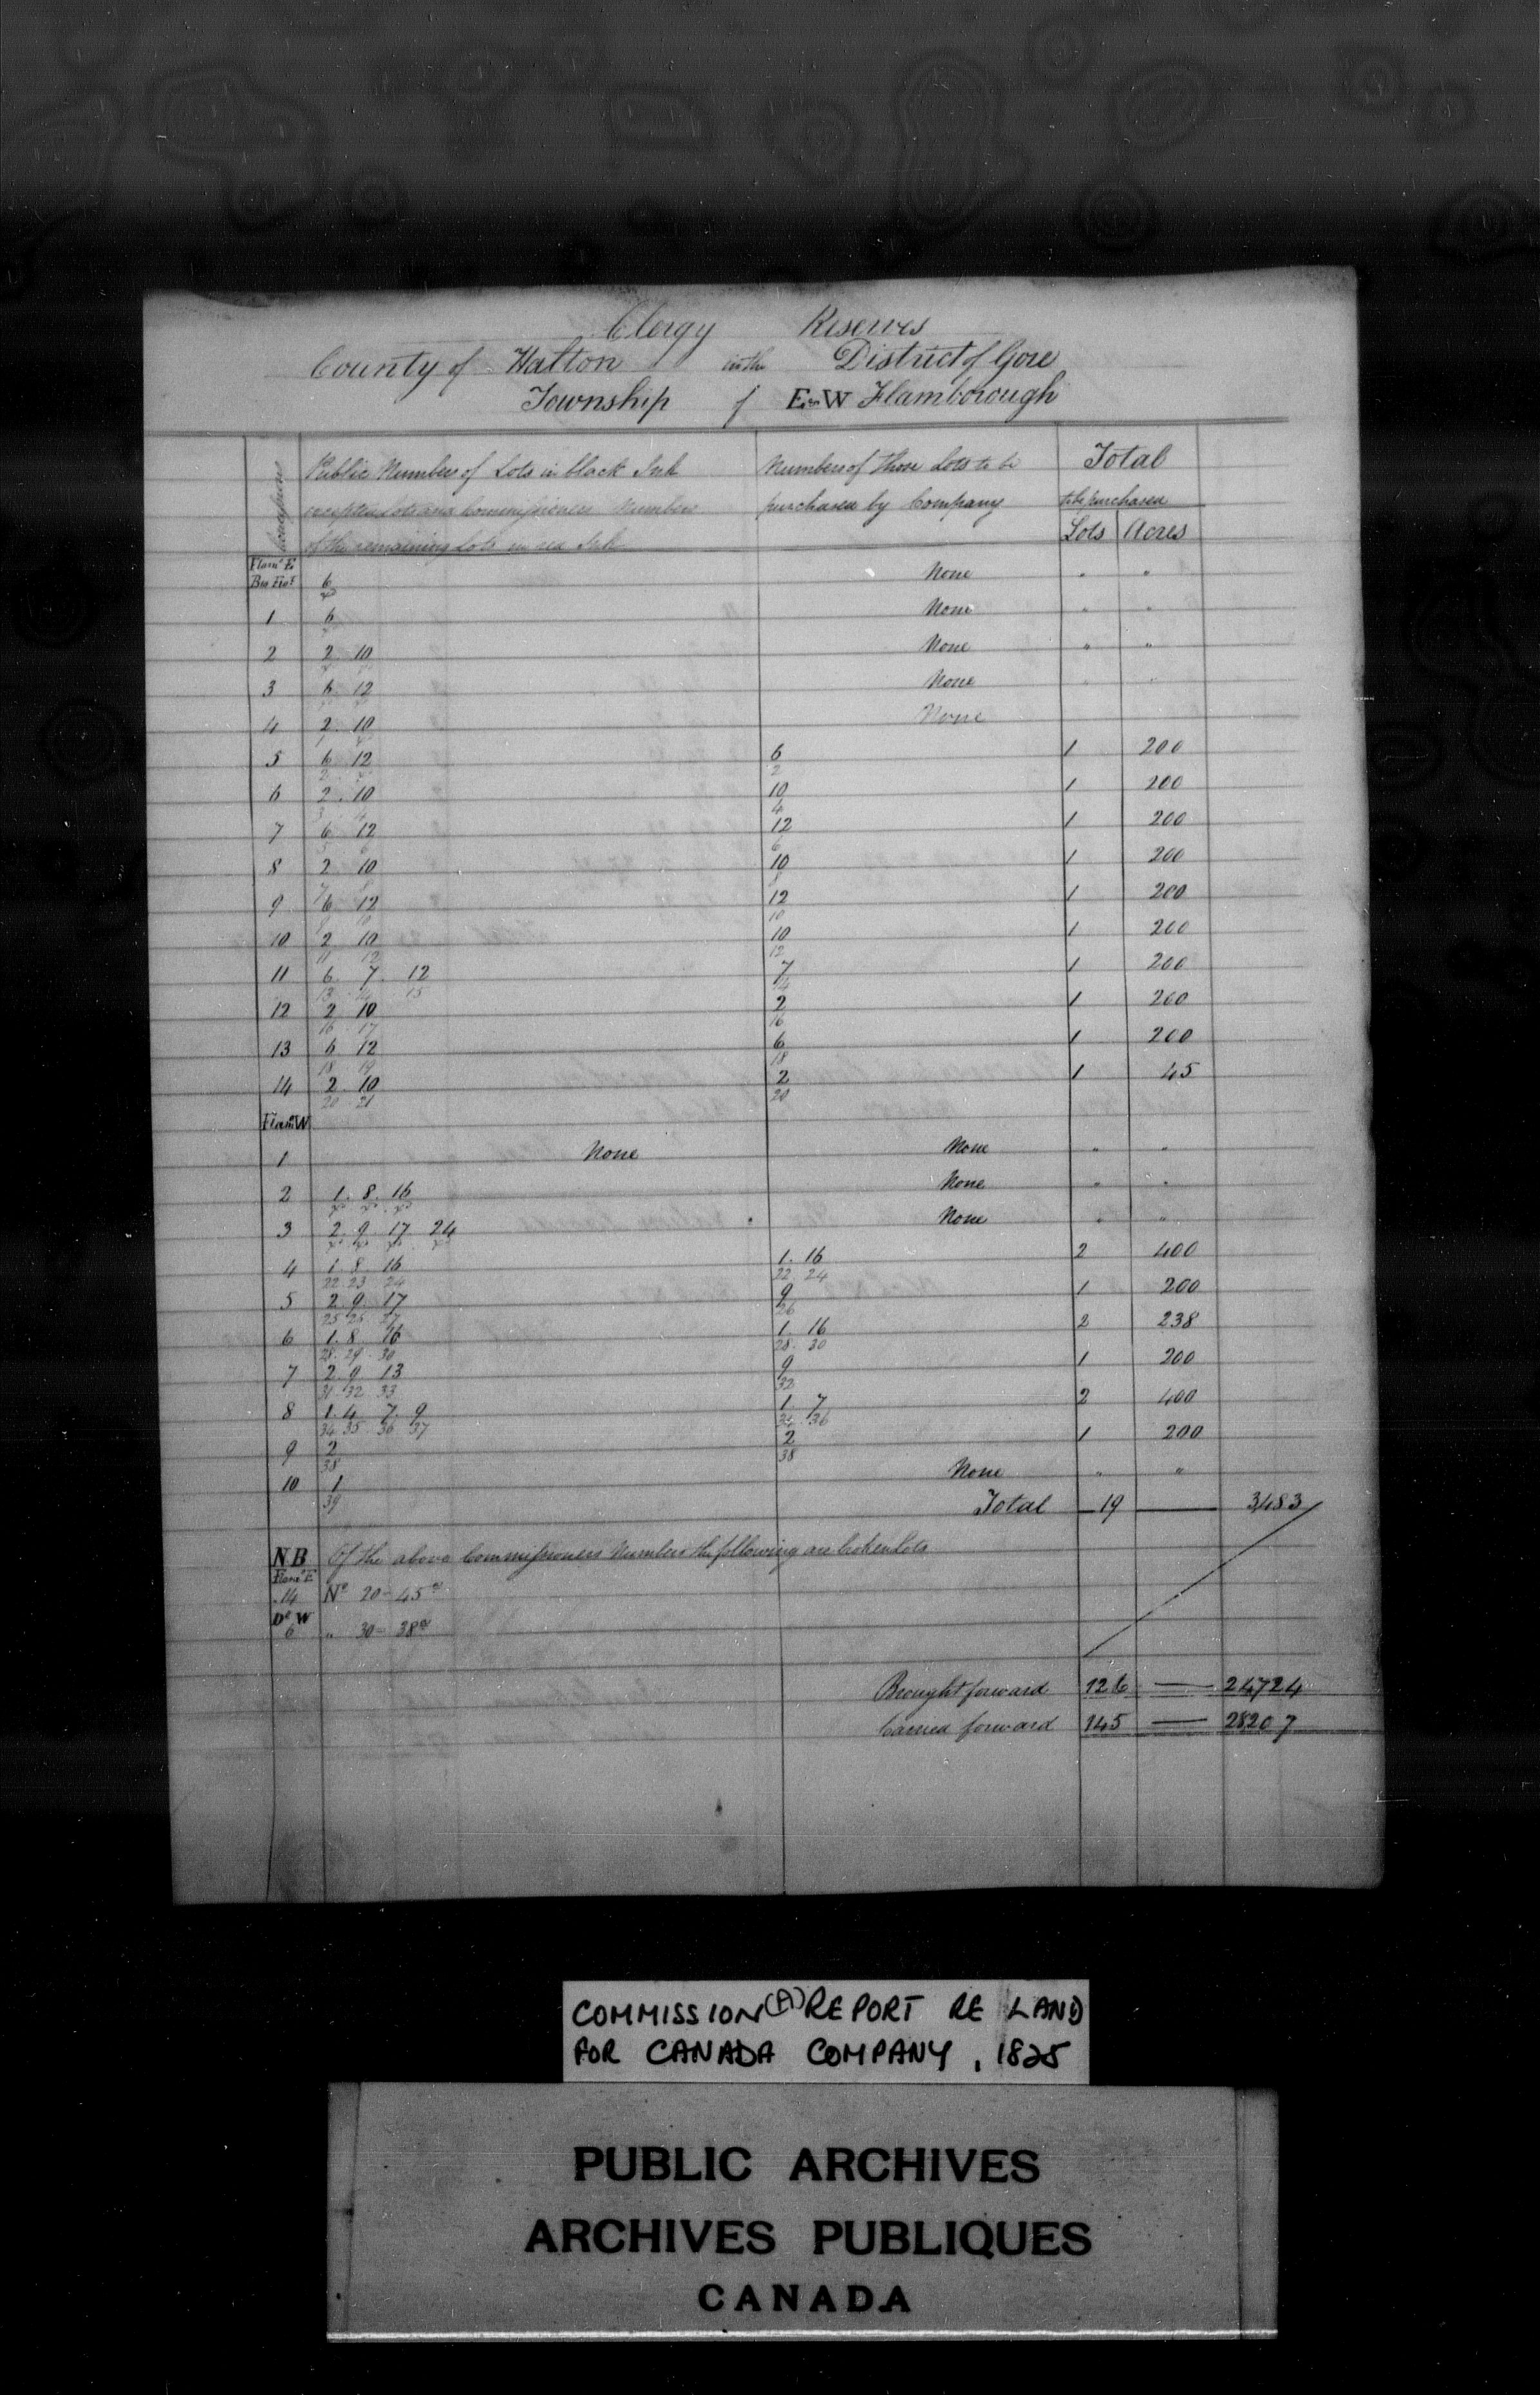 Clergy Reserves
County of Halton in the District of Gore
Township of E & W Flamborough
Concessions
Public Number of Lots in black Ink
excepted Lots and Commissioners Numbers
of the remaining Lots in red Ink
Numbers of those Lots to be
purchased by Company
Total
to be purchased
Lots Acres
Flam.º E.
Bro Fro.t 6 None " "
x
1 6 None " "
2 2 10 None " "
3 6 12 None " "
4 2. 10 None
1 x
5 6 12 6 1 200
2 x 2
6 2. 10 10 1 200
3 4 4
7 6 12 12 1 200
5 6 6
8 2 10 10 1 200
7 8 8
9 6 12 12 1 200
9 10 10
10 2 10 10 1 200
11 12 12
11 6. 7. 12 7 1 200
13 14 15 14
12 2 10 2 1 200
16 17 16
13 6 12 6 1 200
18 19 18
14 2 10 2 1 45
20 21 20
Flam.º W
1 None None " "
2 1. 8. 16 None " "
x x x
3 2. 9. 17 24 None " "
x x x x
4 1. 8. 16 1. 16 2 400
22 23 24 22 24
5 2. 9. 17 9 1 200
25 26 27 26
6 1. 8. 16 1. 16 2 238
28. 29. 30 28. 30
7 2. 9 13 9 1 200
31 32 33 32
8 1. 4 7. 9 1. 7 2 400
34 35 36 37 34 36
9 2 2 1 200
38 38
10 1 None " "
39
Total 19 — 3483
NB Of the above Commissioners Numbers the following are broken Lots
Flam.º E
14 Nº 20 – 45 a
Dº W
6 " 30 – 38 a
Brought forward 126 — 24724
Carried forward 145 — 28207
COMMISSION (A) REPORT RE LAND
FOR CANADA COMPANY, 1825
PUBLIC ARCHIVES
ARCHIVES PUBLIQUES
CANADA